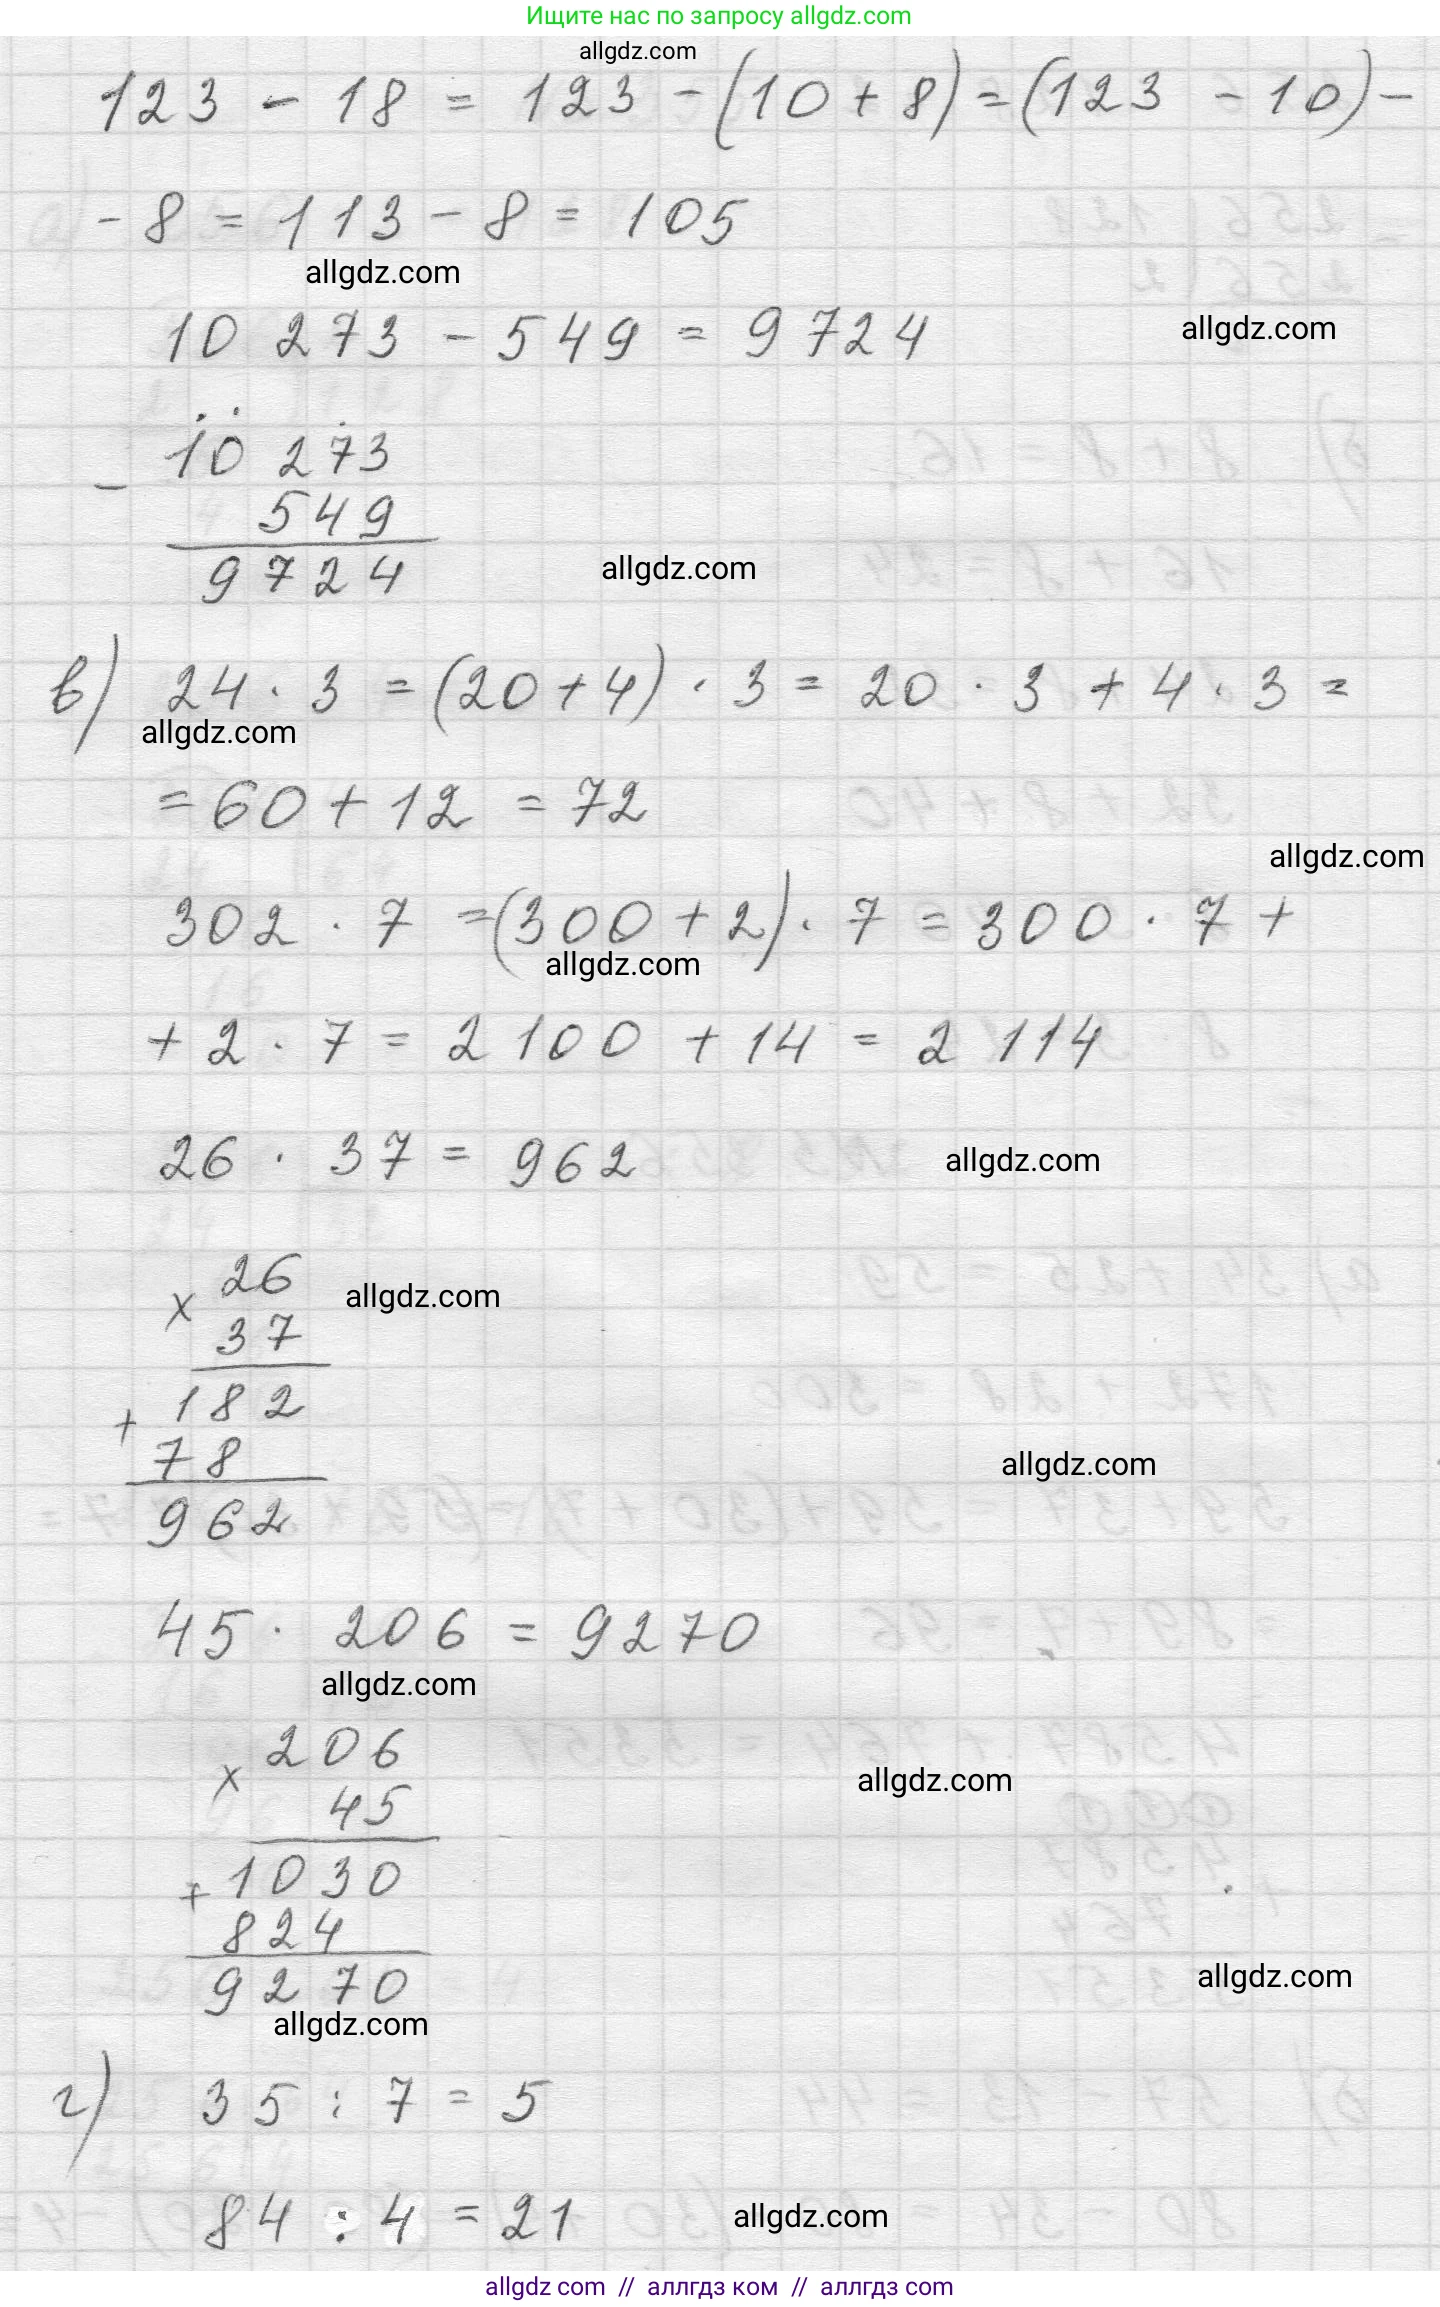 Ищите нас по запросу allgdz.com
allgdz.com
123 - 18 = 123 - (10 + 8) = (123 - 10) -
- 8 = 113 - 8 = 105
allgdz.com
10 273 - 549 = 9 724
allgdz.com
10 273
-
549
9724
allgdz.com
в) 24 · 3 = (20 + 4) · 3 = 20 · 3 + 4 · 3 =
allgdz.com
= 60 + 12 = 72
allgdz.com
302 · 7 = (300 + 2) · 7 = 300 · 7 +
allgdz.com
+ 2 · 7 = 2 100 + 14 = 2 114
26 · 37 = 962
allgdz.com
26
x
allgdz.com
37
182
+
78
allgdz.com
962
45 · 206 = 9270
allgdz.com
206
x
allgdz.com
45
1030
+
824
allgdz.com
9270
allgdz.com
г) 35 : 7 = 5
84 : 4 = 21
allgdz.com
allgdz com // аллгдз ком // аллгдз com